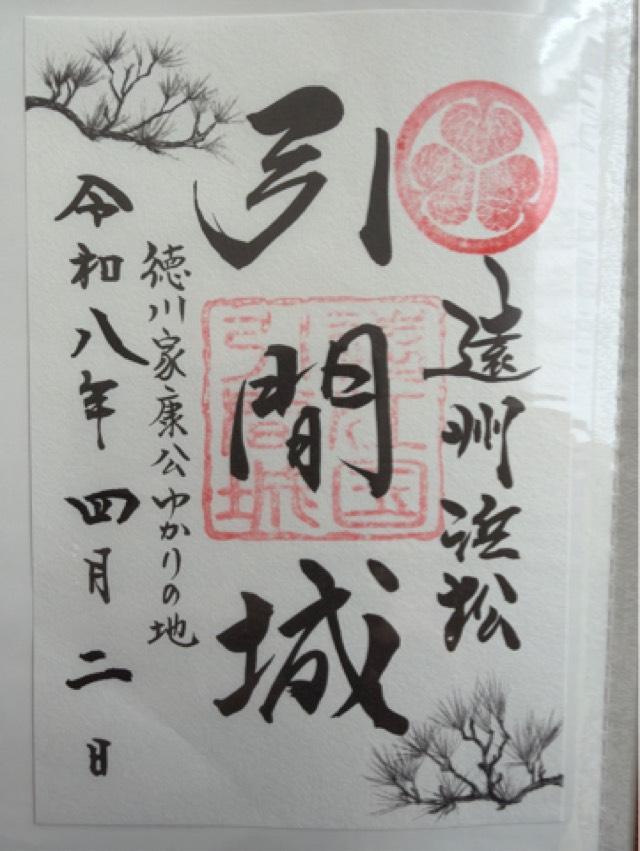 遠州浜松
引間城
遠江国
引間城
徳川家康公ゆかりの地
令和八年四月二日